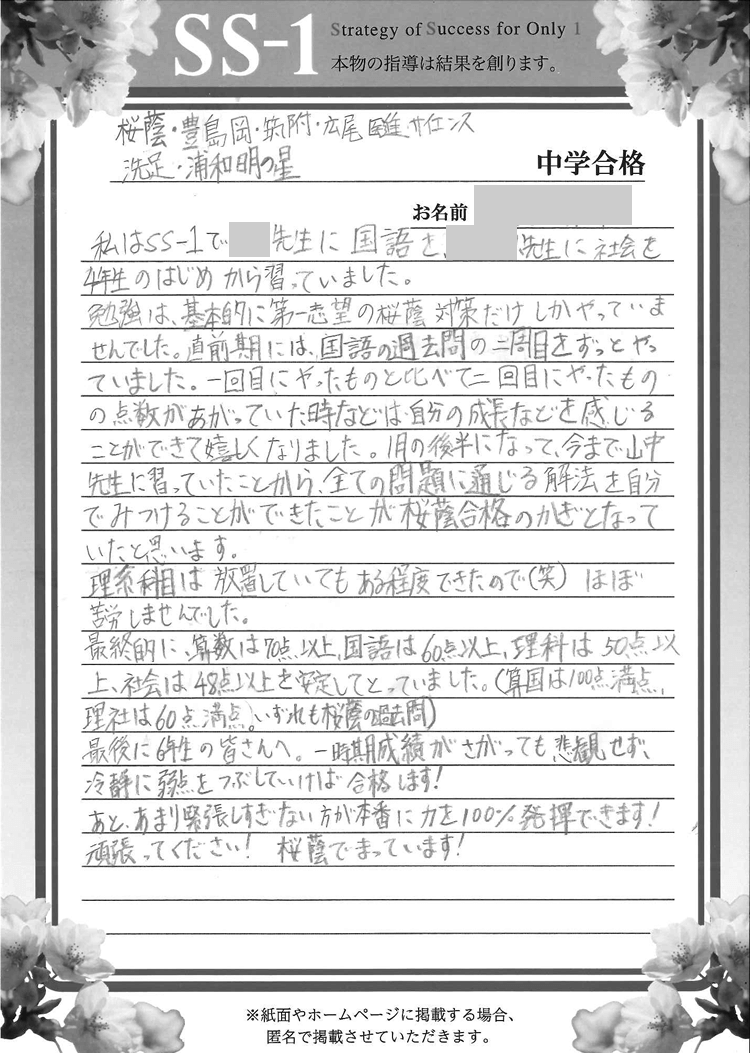 SS-1
Strategy of Success for Only 1
本物の指導は結果を創ります。
桜蔭・豊島岡・筑附・広尾医進サイエンス
洗足・浦和明の星
中学合格
お名前
私はSS-1で 先生に国語を、 先生に社会を
4年生のはじめから習っていました。
勉強は、基本的に第一志望の桜蔭対策だけしかやっていま
せんでした。直前期には、国語の過去問の二周目をずっとやっ
ていました。一回目にやったものと比べて二回目にやったもの
の点数があがっていた時などは自分の成長などを感じる
ことができて嬉しくなりました。1月の後半になって、今まで山中
先生に習っていたことから、全ての問題に通じる解法を自分
でみつけることができたことが桜蔭合格のかぎとなって
いたと思います。
理系科目は放置していてもある程度できたので(笑)ほぼ
苦労しませんでした。
最終的に、算数は70点以上、国語は60点以上、理科は50点以
上、社会は48点以上を安定してとっていました。(算国は100点満点、
理社は60点満点。いずれも桜蔭の過去問)
最後に6年生の皆さんへ。一時期成績がさがっても悲観せず、
冷静に弱点をつぶしていけば合格します!
あと、あまり緊張しすぎない方が本番に力を100%発揮できます!
頑張ってください! 桜蔭でまっています!
※紙面やホームページに掲載する場合、
匿名で掲載させていただきます。